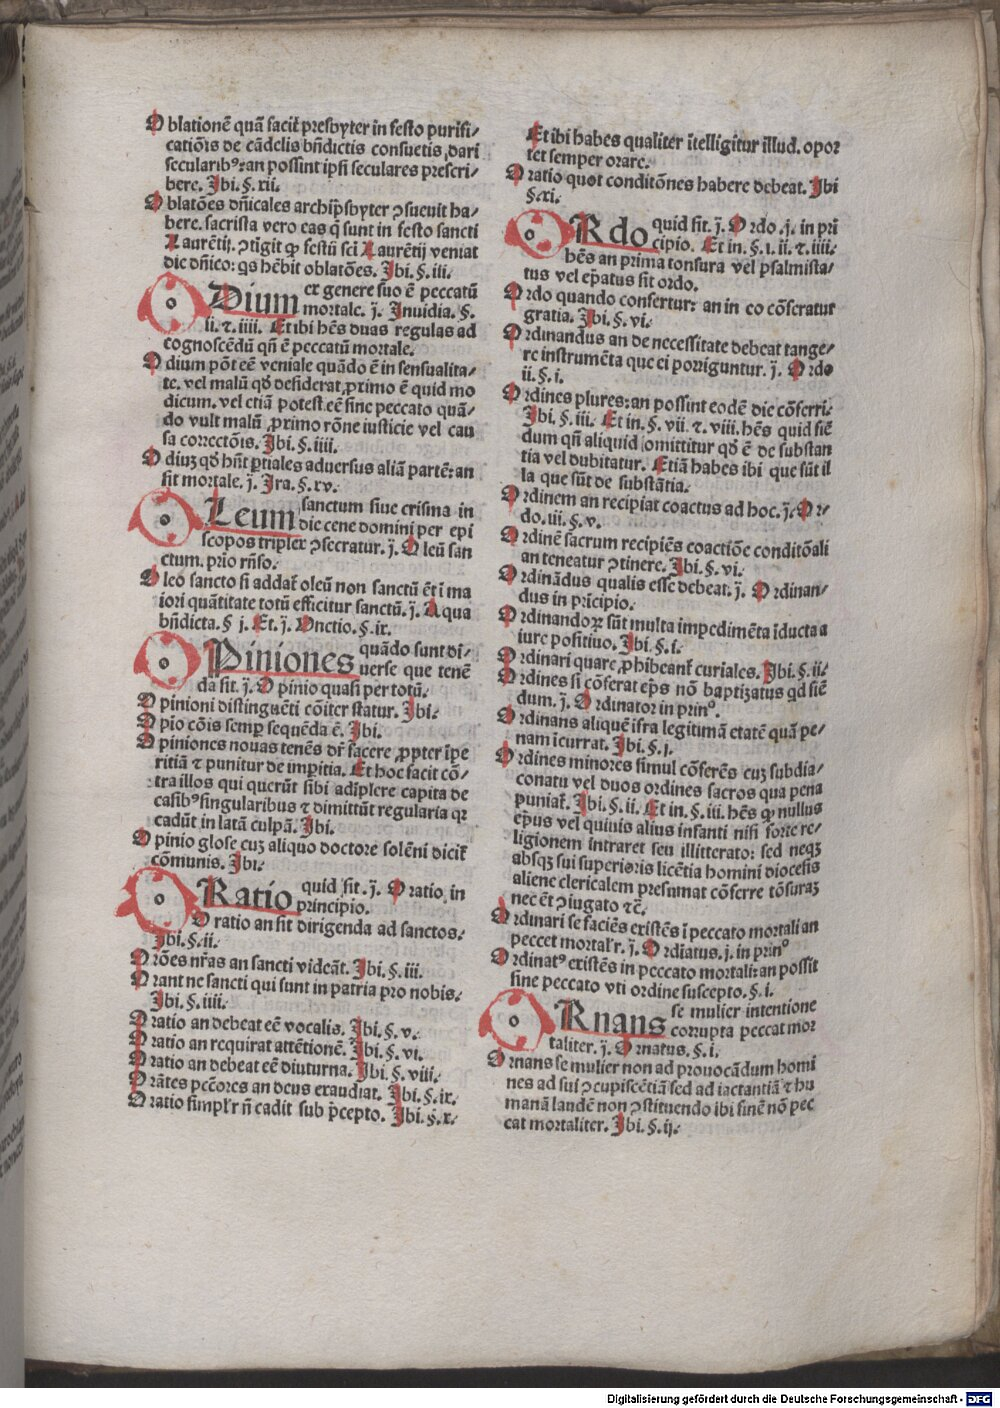 Oblationē quā facit̄ presbyter in festo purifi/
catiōis de cādelis bn̄dictis consuetis dari
secularibꝰ: an possint ipsi seculares prescri/
bere. Ibi. §. xii.
Oblatōes dn̄icales archip̄sbyter ꝯsueuit ha/
bere. sacrista vero eas q̄ sunt in festo sancti
Laurētij. ꝯtigit ꝙ festū sci Laurētij veniat
die dn̄ico: qs hēbit oblatōes. Ibi. §. iii.
ODium ex genere suo ē peccatū
mortale. j. Inuidia. §.
ii. ⁊. iiii. Et ibi hēs duas regulas ad
cognoscēdū qn̄ ē peccatū mortale.
Odium pōt eē veniale quādo ē in sensualita/
te. vel malū qḋ desiderat ꝓximo ē quid mo
dicum. vel etiā potest eē sine peccato quā/
do vult malū ꝓximo rōne iusticie vel cau
sa correctōis. Ibi. §. iiii.
Odiuꝫ qḋ hn̄t ꝑtiales aduersus aliā partē: an
sit mortale. j. Ira. §. xv.
OLeum sanctum siue crisma in
die cene domini per epi
scopos triplex ꝯsecratur. j. Oleū san
ctum. prio rn̄so.
Oleo sancto si addat̄ oleū non sanctū ēt ī ma
iori quātitate totū efficitur sanctū. j. Aqua
bn̄dicta. § j. Et. j. Vnctio. §. ix.
OPiniones quādo sunt di/
uerse que tenē
da sit. j. Opinio quasi per totū.
Opinioni distinguēti cōiter statur. Ibi.
Opio cōis semꝑ sequēda ē. Ibi.
Opiniones nouas tenēs dr̄ facere ꝓpter īpe
ritiā ⁊ punitur de imꝑitia. Et hoc facit cō/
tra illos qui querūt sibi adīplere capita de
casibꝰ singularibus ⁊ dimittūt regularia qꝛ
cadūt in latā culpā. Ibi.
Opinio glose cuꝫ aliquo doctore solēni dicit̄
cōmunis. Ibi.
ORatio quid sit. j. Oratio. in
principio.
Oratio an sit dirigenda ad sanctos.
Ibi. §. ii.
Orōes nr̄as an sancti videāt. Ibi. §. iii.
Orant ne sancti qui sunt in patria pro nobis.
Ibi. §. iiii.
Oratio an debeat eē vocalis. Ibi. §. v.
Oratio an requirat attētionē. Ibi. §. vi.
Oratio an debeat eē diuturna. Ibi. §. viii.
Orātes pctōres an deus exaudiat. Ibi. §. ix.
Oratio simpl'r n̄ cadit sub p̄cepto. Ibi. §. x.
Et ibi habes qualiter ītelligitur illud. opor
tet semper orare.
Oratio quot conditōnes habere debeat. Ibi
§. xi.
ORdo quid sit. j. Ordo .j. in pri
cipio. Et in. §. i. ii. ⁊. iiii.
hēs an prima tonsura vel psalmista/
tus vel ep̄atus sit ordo.
Ordo quando confertur: an in eo cōferatur
gratia. Ibi. §. vi.
Ordinandus an de necessitate debeat tange/
re instrumēta que ei porriguntur. j. Ordo
ii. §. i.
Ordines plures: an possint eodē die cōferri.
Ibi. §. iii. Et in. §. vii. ⁊. viii. hēs quid siē
dum qn̄ aliquid omittitur qḋ ē de substan
tia vel dubitatur. Etiā habes ibi que sūt il
la que sūt de substātia.
Ordinem an recipiat coactus ad hoc. j. Or/
do. iii. §. v.
Ordinē sacrum recipiēs coactiōe conditōali
an teneatur ꝯtinere. Ibi. §. vi.
Ordinādus qualis esse debeat. j. Ordinan/
dus in prīcipio.
Ordinandoꝝ sūt multa impedimēta īducta a
iure positiuo. Ibi. §. i.
Ordinari quare ꝓhibeant̄ curiales. Ibi. §. ii.
Ordines si cōferat ep̄s nō baptizatus qd siē
dum. j. Ordinator in prinᵒ.
Ordinans aliquē īfra legitimā etatē quā pe/
nam īcurrat. Ibi. §. j.
Ordines minores simul cōferēs cuꝫ subdia/
conatu vel duos ordines sacros qua pena
puniat̄. Ibi. §. ii. Et in. §. iii. hēs ꝙ nullus
ep̄us vel quiuis alius infanti nisi forte re/
ligionem intraret seu illitterato: sed neqꝫ
absqꝫ sui superioris licētia homini diocesis
aliene clericalem presumat cōferre tōsuraꝫ
nec ēt ꝯiugato ⁊c̄.
Ordinari se faciēs existēs ī peccato mortali an
peccet mortal'r. j. Ordīatus. j. in prinᵒ
Ordinatꝰ existēs in peccato mortali: an possit
sine peccato vti ordine suscepto. §. i.
ORnans se mulier intentione
corrupta peccat mor
taliter. j. Ornatus. §. i.
Ornans se mulier non ad prouocādum homi
nes ad sui ꝯcupiscētiā sed ad iactantiā ⁊ hu
manā laudē non ꝯstituendo ibi finē nō pec
cat mortaliter. Ibi. §. ij.
Digitalisierung gefördert durch die Deutsche Forschungsgemeinschaft - DFG